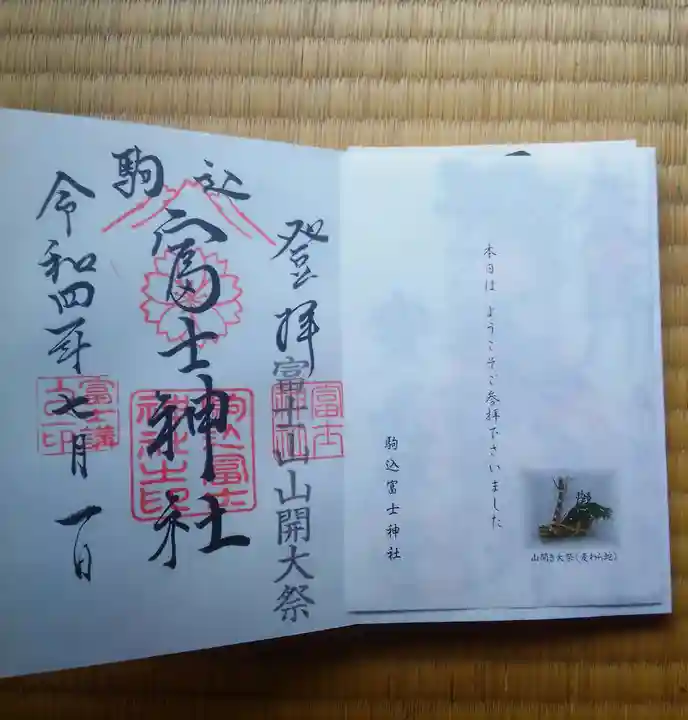 登拝
富士山山開大祭
駒込
富士神社
令和四年七月一日
駒込富士神社之印
本日は ようこそご参拝下さいました
駒込富士神社
山開き大祭(麦わら蛇)